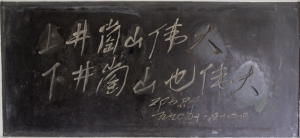 上井崗山伟大
下井崗山也伟大